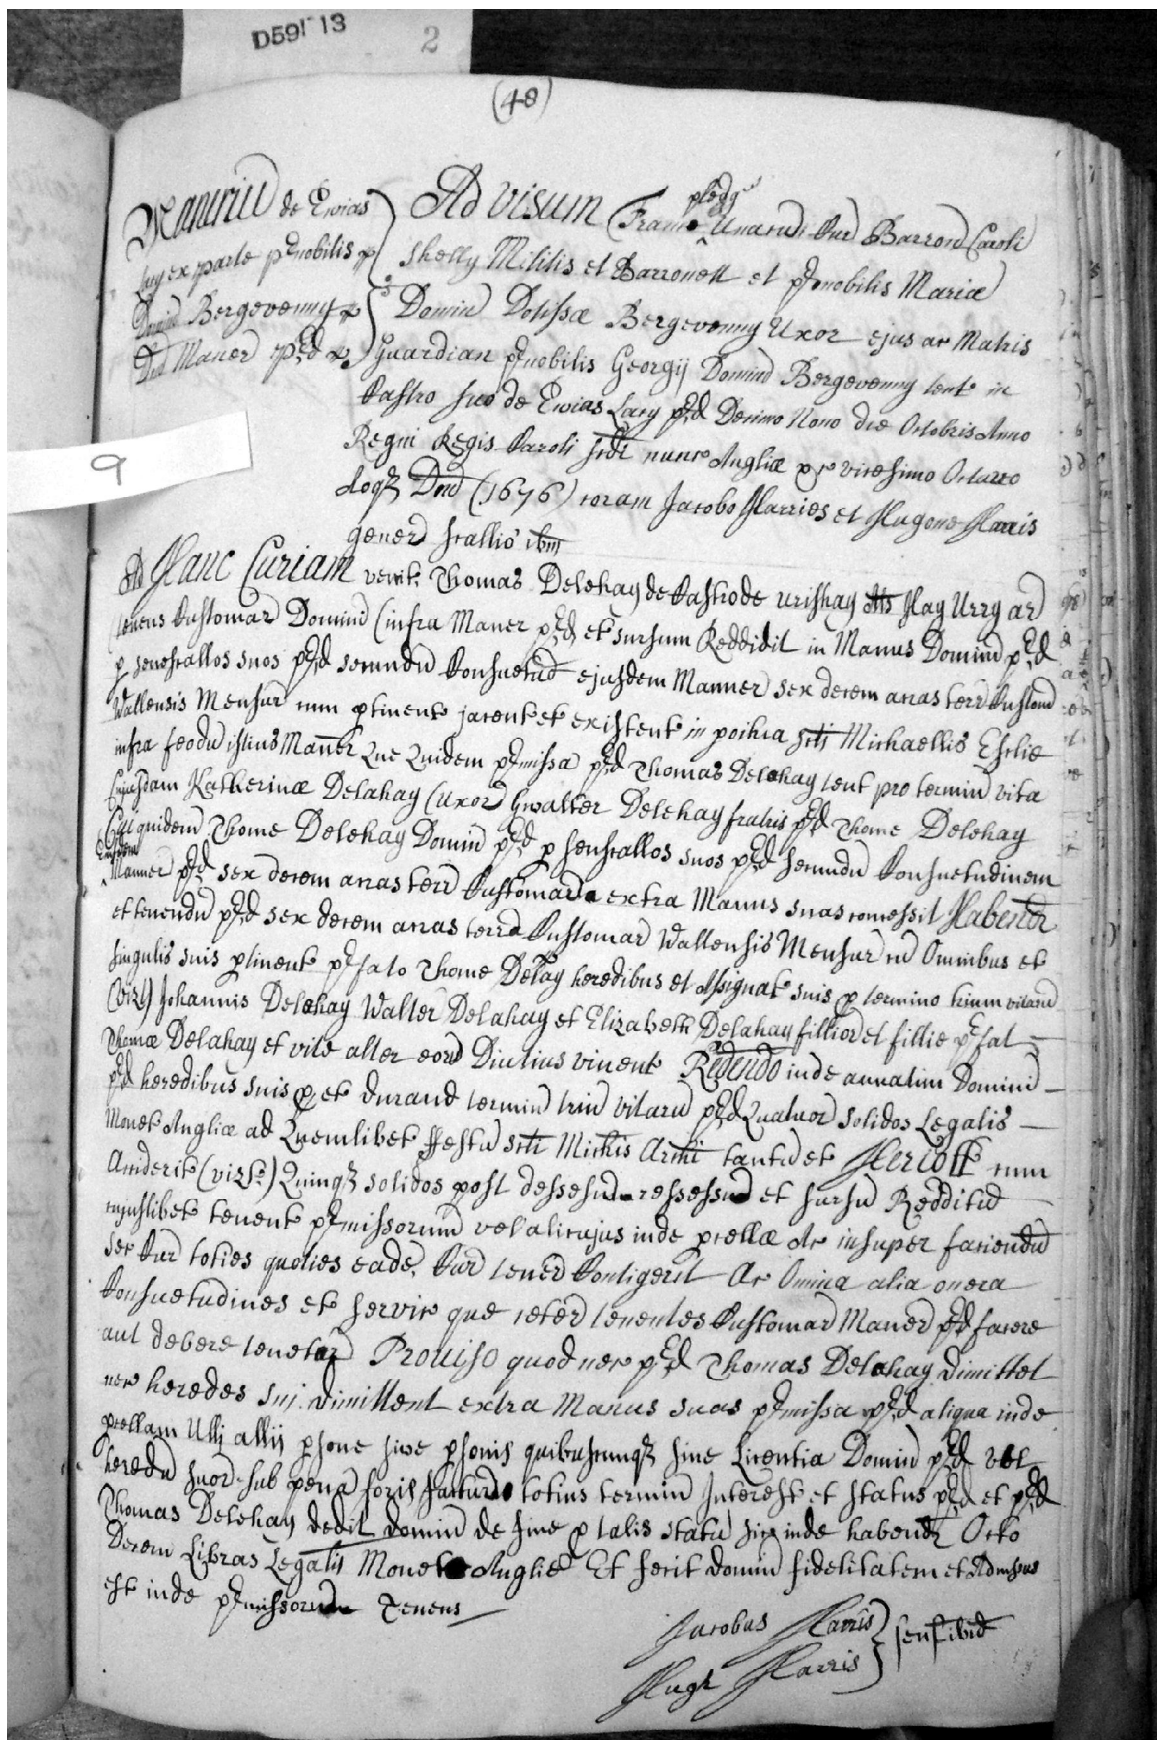 D591 13
2
(48)
9
Maneriu de Ewias
Lacy ex parte p'nobilis
Domin Bergevenny
Dnd Maner p'd
Ad Visum Franc pledg Unacud Cur Barrond Caroli
Shelly Militis et Barronett et p'nobilis Mariæ
Domin Dotissæ Bergevenny Uxor ejus ac Matris
Guardian p'nobilis Georgij Domind Bergevenny tent in
Castro suo de Ewias Lacy p'd Decimo Nono die Octobris Anno
Regni Regis Caroli scdi nunc Angliæ &c vicesimo Octavo
Aoqz Dnd (1676) coram Jacobo Harries et Hugone Harris
generd scallis ibm
Ad Hanc Curiam venit Thomas Delehay de Castrode Urishay als Hay Urry ar
tenens Customar Domind (infra Maner p'd et sursum Reddidit in Manus Domind p'd
p senescallos suos p'd secundu Consuetud ejusdem Manner sex decem acras terr Customd
Wallensis Mensur cum ptinent jacent et existent in poihia scti Michaellis Esclie
infra feodu istius Manner Que Quidem p'missa p'd Thomas Delehay tent pro termin vita
Cujusdam Katherinæ Delahay (uxor) Gwalter Delehay fratris p'd Thome Delehay
Cui quidem Thome Delehay Domin p'd p senscallos suos p'd secundu Consuetudinem
Ejusdem
Manner p'd sex decem acras terr Customard extra Manus suas concessit Habend
et tenendu p'd sex decem acras terrd Customar Wallensis Mensur cu Omnibus et
singulis suis ptinent p'fato Thome Delay heredibus et Assignat suis p termino trium vitard
(vizt) Johannis Delehay Walter Delahay et Elizabeth Delahay filliord et fillie p'fat
Thomæ Delahay et vite alter eord Diutius vivent Redendo inde annatim Domind
p'd heredibus suis p et durand termind triu vitaru p'd Quatuor solidos Legalis
Monet Angliæ ad Quemlibet ffestu scti Michis Archi tantu et Heriott cum
Acciderit (vizt) Quinqz solidos post dessesud ressessud et sursu Redditud
cujuslibet tenent p'missorum vel alicujus inde pcellæ Ac insuper faciendu
Sec Cur toties quoties eade Cur tenerd Contigerit Ac Omnia alia onera
Consuetudines et servic que ceterd tenentes Customar Manerd p'd facere
aut debere tenetur Proviso quod nec p'd Thomas Delahay dimittet
nec heredes suj dimittent extra Manus suas p'missa p'd aliqua inde
pcellam Ulli allij psone sive psonis quibuscunqz sine Licentia Domind p'd vel
heredu suord sub pena foris facturd totius termin Interest et status p'd et p'd
Thomas Delehay dedit domind de fine p talis statu sic inde habend Octo
Decem Libras Legalis Monet Anglie Et fecit Domind fidelitatem et Admissus
est inde p'missorum Tenens
Jacobus Harris
Hugh Harris
sensc ibid